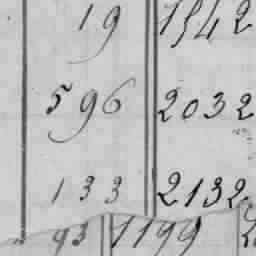 19 1542
596 2032
133 2132
93 1199